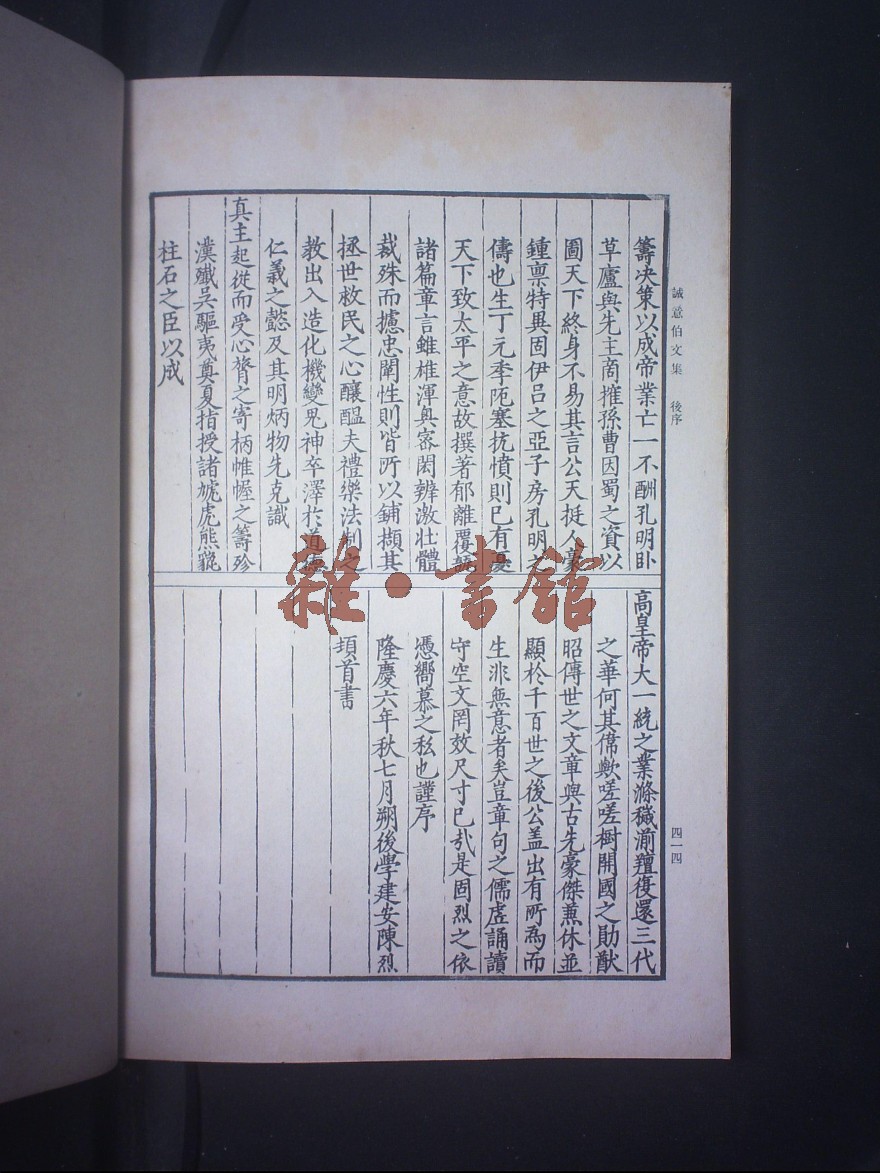 誠意伯文集　後序
籌決策以成帝業亡一不酬孔明卧
草廬與先主商搉孫曹因蜀之資以
圖天下終身不易其言公天挺人豪
鍾禀特異固伊吕之亞子房孔明之
儔也生丁元季阨塞抗憤則已有憂
天下致太平之意故撰著郁離覆瓿
諸篇章言雖雄渾奥密閎辨激壯體
裁殊而攄忠闡性則皆所以鋪擷其
拯世救民之心釀醖夫禮樂法制之
教出入造化機變鬼神卒澤於道德
仁義之懿及其明炳物先克識
真主起從而受心膂之寄柄帷幄之籌殄
漢殲吳驅夷奠夏指授諸虓虎熊羆
柱石之臣以成
高皇帝大一統之業滌穢湔羶復還三代
之華何其偉歟嗟嗟樹開國之勛猷
昭傳世之文章與古先豪傑薫休並
顯於千百世之後公盖出有所為而
生非無意者矣豈章句之儒虚誦讀
守空文罔效尺寸已哉是固烈之依
憑嚮慕之私也謹序
隆慶六年秋七月朔後學建安陳烈
頓首書
四一四
雜·書館